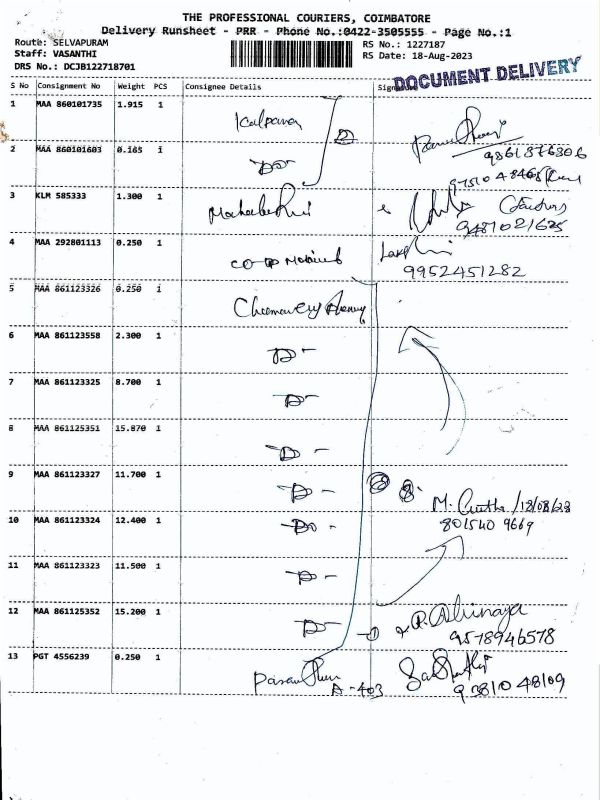 THE PROFESSIONAL COURIERS, COIMBATORE
Delivery Runsheet - PRR - Phone No.:0422-3505555 - Page No.:1
Route: SELVAPURAM
Staff: VASANTHI
DRS No.: DCJB122718701
RS No.: 1227187
RS Date: 18-Aug-2023
DOCUMENT DELIVERY
S No Consignment No Weight PCS Consignee Details Signature
1 MAA 860101735 1.915 1 Kalpana
9361876306
2 MAA 860101603 0.165 1 Do
3 KLM 585333 1.300 1
9481021625
4 MAA 292801113 0.250 1
9952451282
5 MAA 861123326 0.250 1
6 MAA 861123558 2.300 1 D-
7 MAA 861123325 8.700 1 D-
8 MAA 861125351 15.870 1 D-
9 MAA 861123327 11.700 1 D- 8
M. /18/08/23
10 MAA 861123324 12.400 1 Do-
801540 9669
11 MAA 861123323 11.500 1 D-
12 MAA 861125352 15.200 1 D- 1 P. Abinaya
9578946578
13 PGT 4556239 0.250 1
A-403 93810 48109